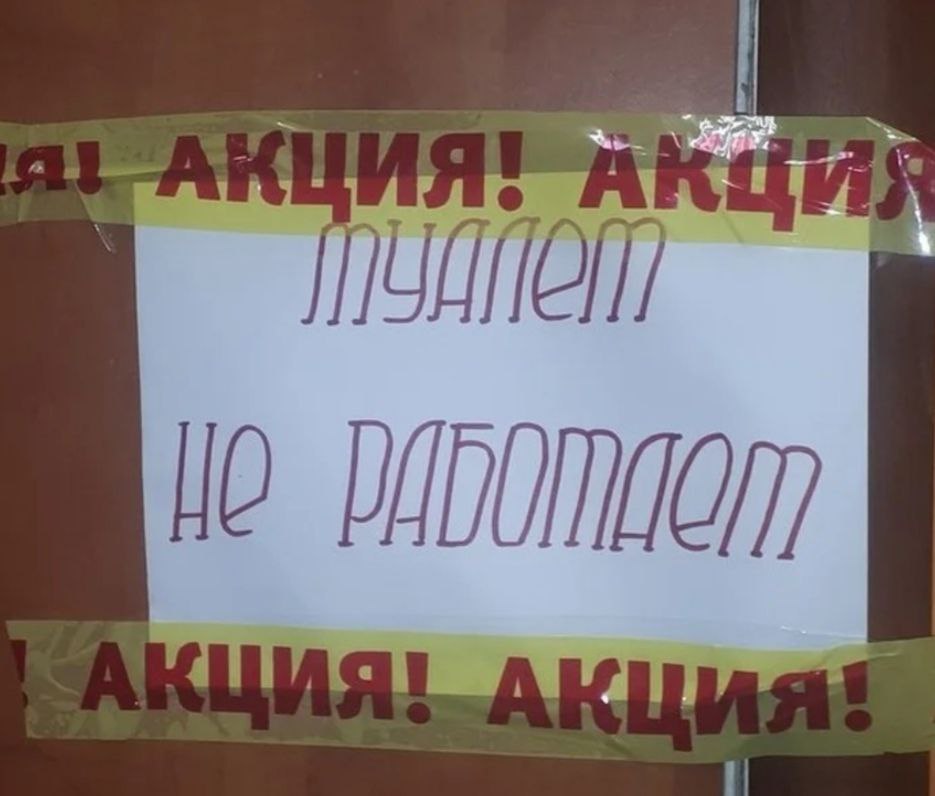 ия! АКЦИЯ! АКЦИЯ
туалет
не работает
! АКЦИЯ! АКЦИЯ!